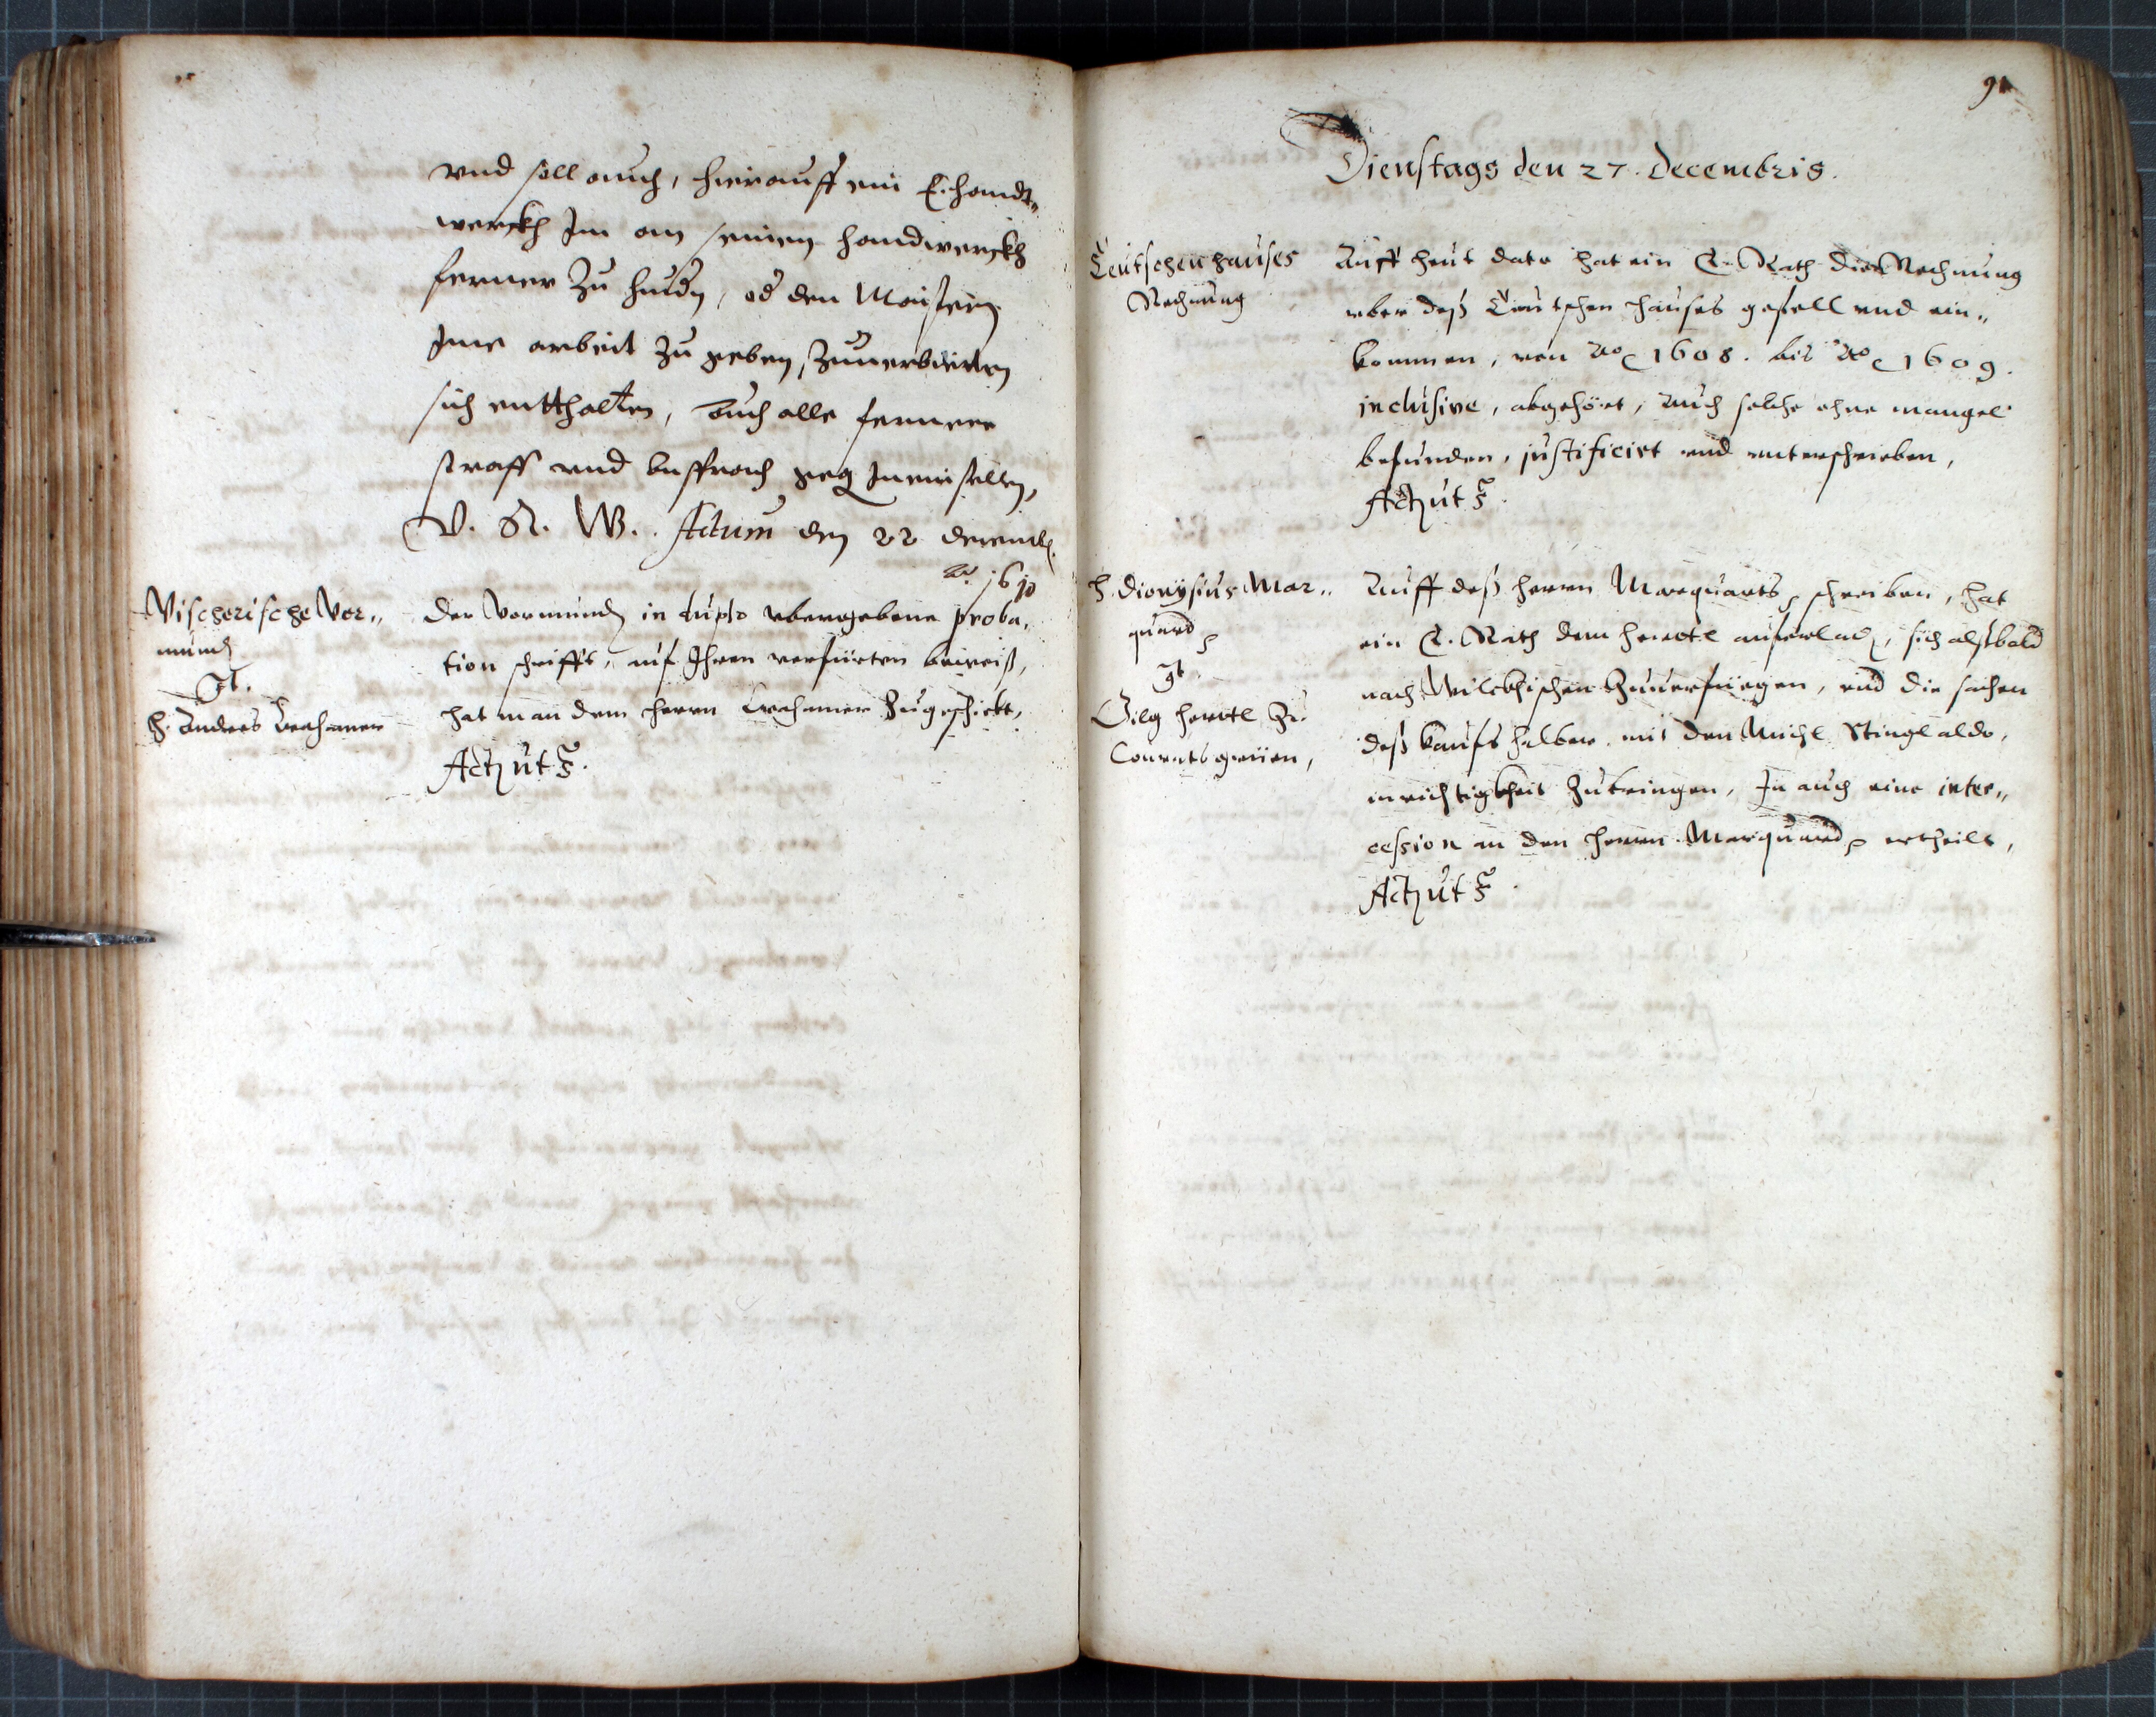 vnd soll auch, hierauff ein E. handt„
werckh Jm an seinem handwerckh
ferner zu hindern, od den Maistern
Jme arbeit zu geben, zuuerbieten
sich entthalten, auch alle fernere
straff vnd
V. R. W. Actum den 22 decemb.
Ao. 1610
Vischerische Vor„
mund
Ct.
H. Andres
Der Vormund in duplo vbergebene proba„
tion schrifft, auf Ihren verfürten beweiß,
hat man dem herrn zugeschickt,
Act ut s.
91
Dienstags den 27. Decembris.
Teutschenhauses
Rechnung
Auff heut dato hat ein E. Rath die Rechnung
vber deß Teutschen hauses gefell vnd ein„
kommen, von Ao 1608. bis Ao 1609.
inclusive, abgehört, auch solche ohne mangel
befunden, justificirt vnd vnterschrieben,
Act ut s.
H. Dionysius Mar„
quard
Ct.
Gilg Hertl zu
Conratsgrüen,
Auff deß herrn Marquarts schreiben, hat
ein E. Rath dem Hertl auferlad, sich alßbald
nach zuuerfüegen, vnd die sachen
deß kaufs halber mit den Michl Stingl aldo,
in richtigkheit zubringen, Jn auch eine inter„
cession an den herrn Marquard ertheilt,
Act ut s.